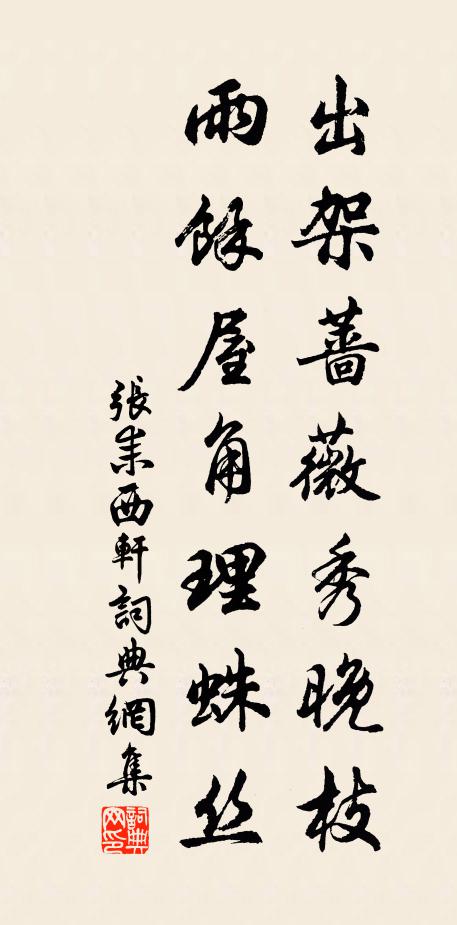 出架薔薇秀晚枝
雨餘屋角理蛛丝
張耒西軒詞典網集
詞典网印